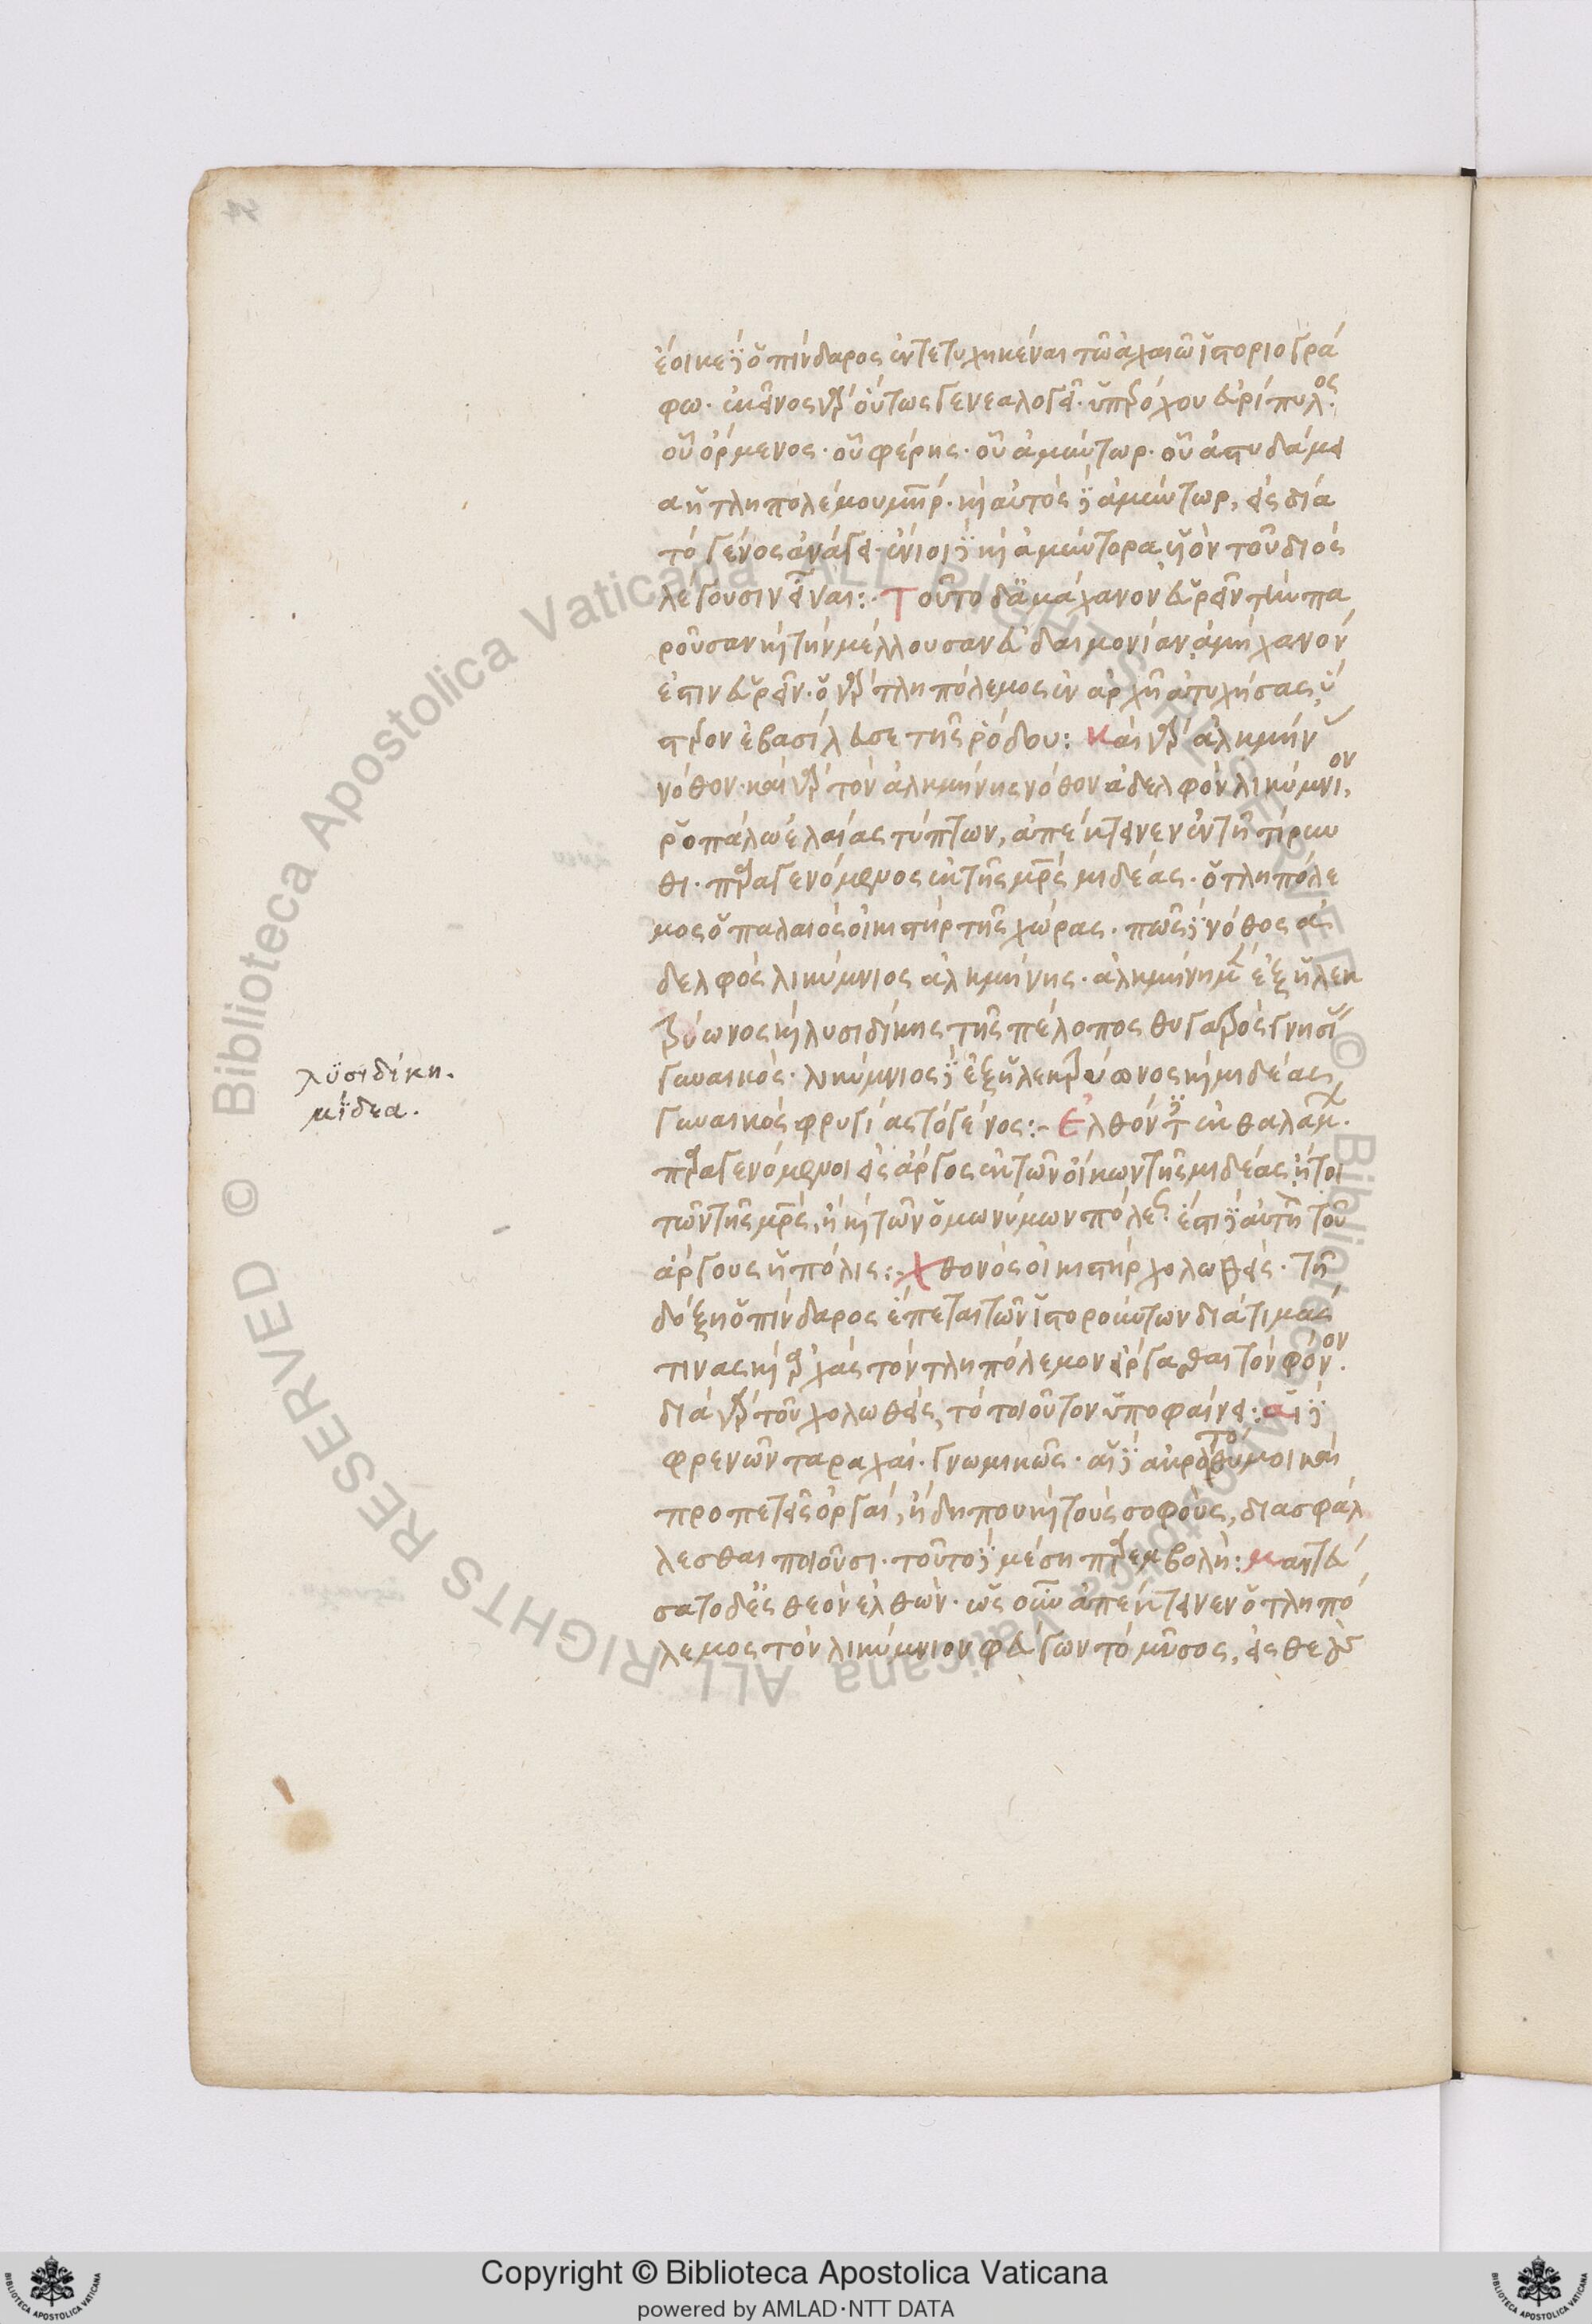 ἔοικε δὲ ὁ πίνδαρος ἐντετυχηκέναι τῶ ἀχαιῶ ἱστοριογρά
φω. ἐκεῖνος γὰρ οὕτως γενεαλογεῖ. ὑπερόχου εὐρίπυλος.
οὗ ὄρμενος. οὗ φέρης. οὗ ἀμύντωρ. οὗ ἀστυδάμει
α ἡ τληπολέμου μήτηρ. καὶ αὐτὸς δὲ ἀμύντωρ, εἰς δία
τὸ γένος ἀνάγει. ἔνιοι δὲ καὶ ἀμύντορα υἱὸν τοῦ διός
λέγουσιν εἶναι: Τοῦτο δ' ἀμάχανον εὑρεῖν τὴν πα
ροῦσαν καὶ τὴν μέλλουσαν εὐδαιμονίαν ἀμήχανόν
ἐστιν εὑρεῖν. ὁ γὰρ τληπόλεμος ἐν ἀρχῆ ἀτυχήσας ὕ
στερον ἐβασίλευσε τῆς ῥόδου: Καὶ γὰρ ἀλκμήνας
νόθον. καὶ γὰρ τὸν ἀλκμήνης νόθον ἀδελφὸν λικύμνιον,
ῥοπάλω ἐλαίας τύπτων, ἀπέκτεινεν ἐν τῆ τίρυν
θι. παραγενόμενος ἐκ τῆς μητρὸς μιδέας. ὁ τληπόλε
μος ὁ παλαιὸς οἰκιστὴρ τῆς χώρας. πῶς δὲ νόθος ἀ
δελφὸς λικύμνιος ἀλκμήνης. ἀλκμήνη μὲν ἐξ ἠλεκ
τρύωνος καὶ λυσιδίκης τῆς πέλοπος θυγατρὸς γνησίας
γυναικός. λικύμνιος δὲ ἐξ ἠλεκτρύωνος καὶ μιδέας
γυναικὸς φρυγίας τὸ γένος:- Ἐλθόντ' ἐκ θαλάμων.
παραγενόμενοι εἰς ἄργος ἐκ τῶν οἴκων τῆς μιδέας, ἤτοι
τῶν τῆς μητρός, ἢ καὶ τῶν ὁμωνύμων πόλεως. ἔστι δὲ αὕτη τοῦ
ἄργους ἡ πόλις:- Χθονὸς οἰκιστὴρ χολωθείς. τῆ
δόξη ὁ πίνδαρος ἕπεται τῶν ἱστορούντων διὰ τιμάς
τινας καὶ ἀρχὰς τὸν τληπόλεμον εἰργάσθαι τὸν φόνον.
διὰ γὰρ τοῦ χολωθείς, τὸ τοιοῦτον ὑποφαίνει: αἱ δὲ
φρενῶν ταραχαί. γνωμικῶς. αἱ δὲ ἀκροτόθυμοι καὶ
προπετεῖς ὀργαί, ἤδη που καὶ τοὺς σοφούς, διασφάλ
λεσθαι ποιοῦσι. τοῦτο δὲ μέση παρεμβολή: μαντεύ
σατο δ' ἐς θεὸν ἐλθών. ὡς οὖν ἀπέκτεινεν ὁ τληπό
λεμος τὸν λικύμνιον φεύγων τὸ μῦσος, εἰς θεοὺς
λυσιδίκη.
μίδεα.
Copyright © Biblioteca Apostolica Vaticana
powered by AMLAD·NTT DATA